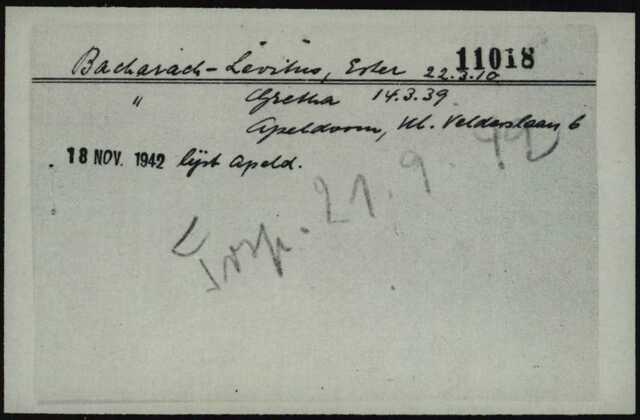 11018
Bacharach-Levitus, Ester 22.3.10
" Gretha 14.3.39
Apeldoorn, Kl. Velderslaan 6
18 NOV. 1942 lijst Apeld.
Trsp. 21.9.42